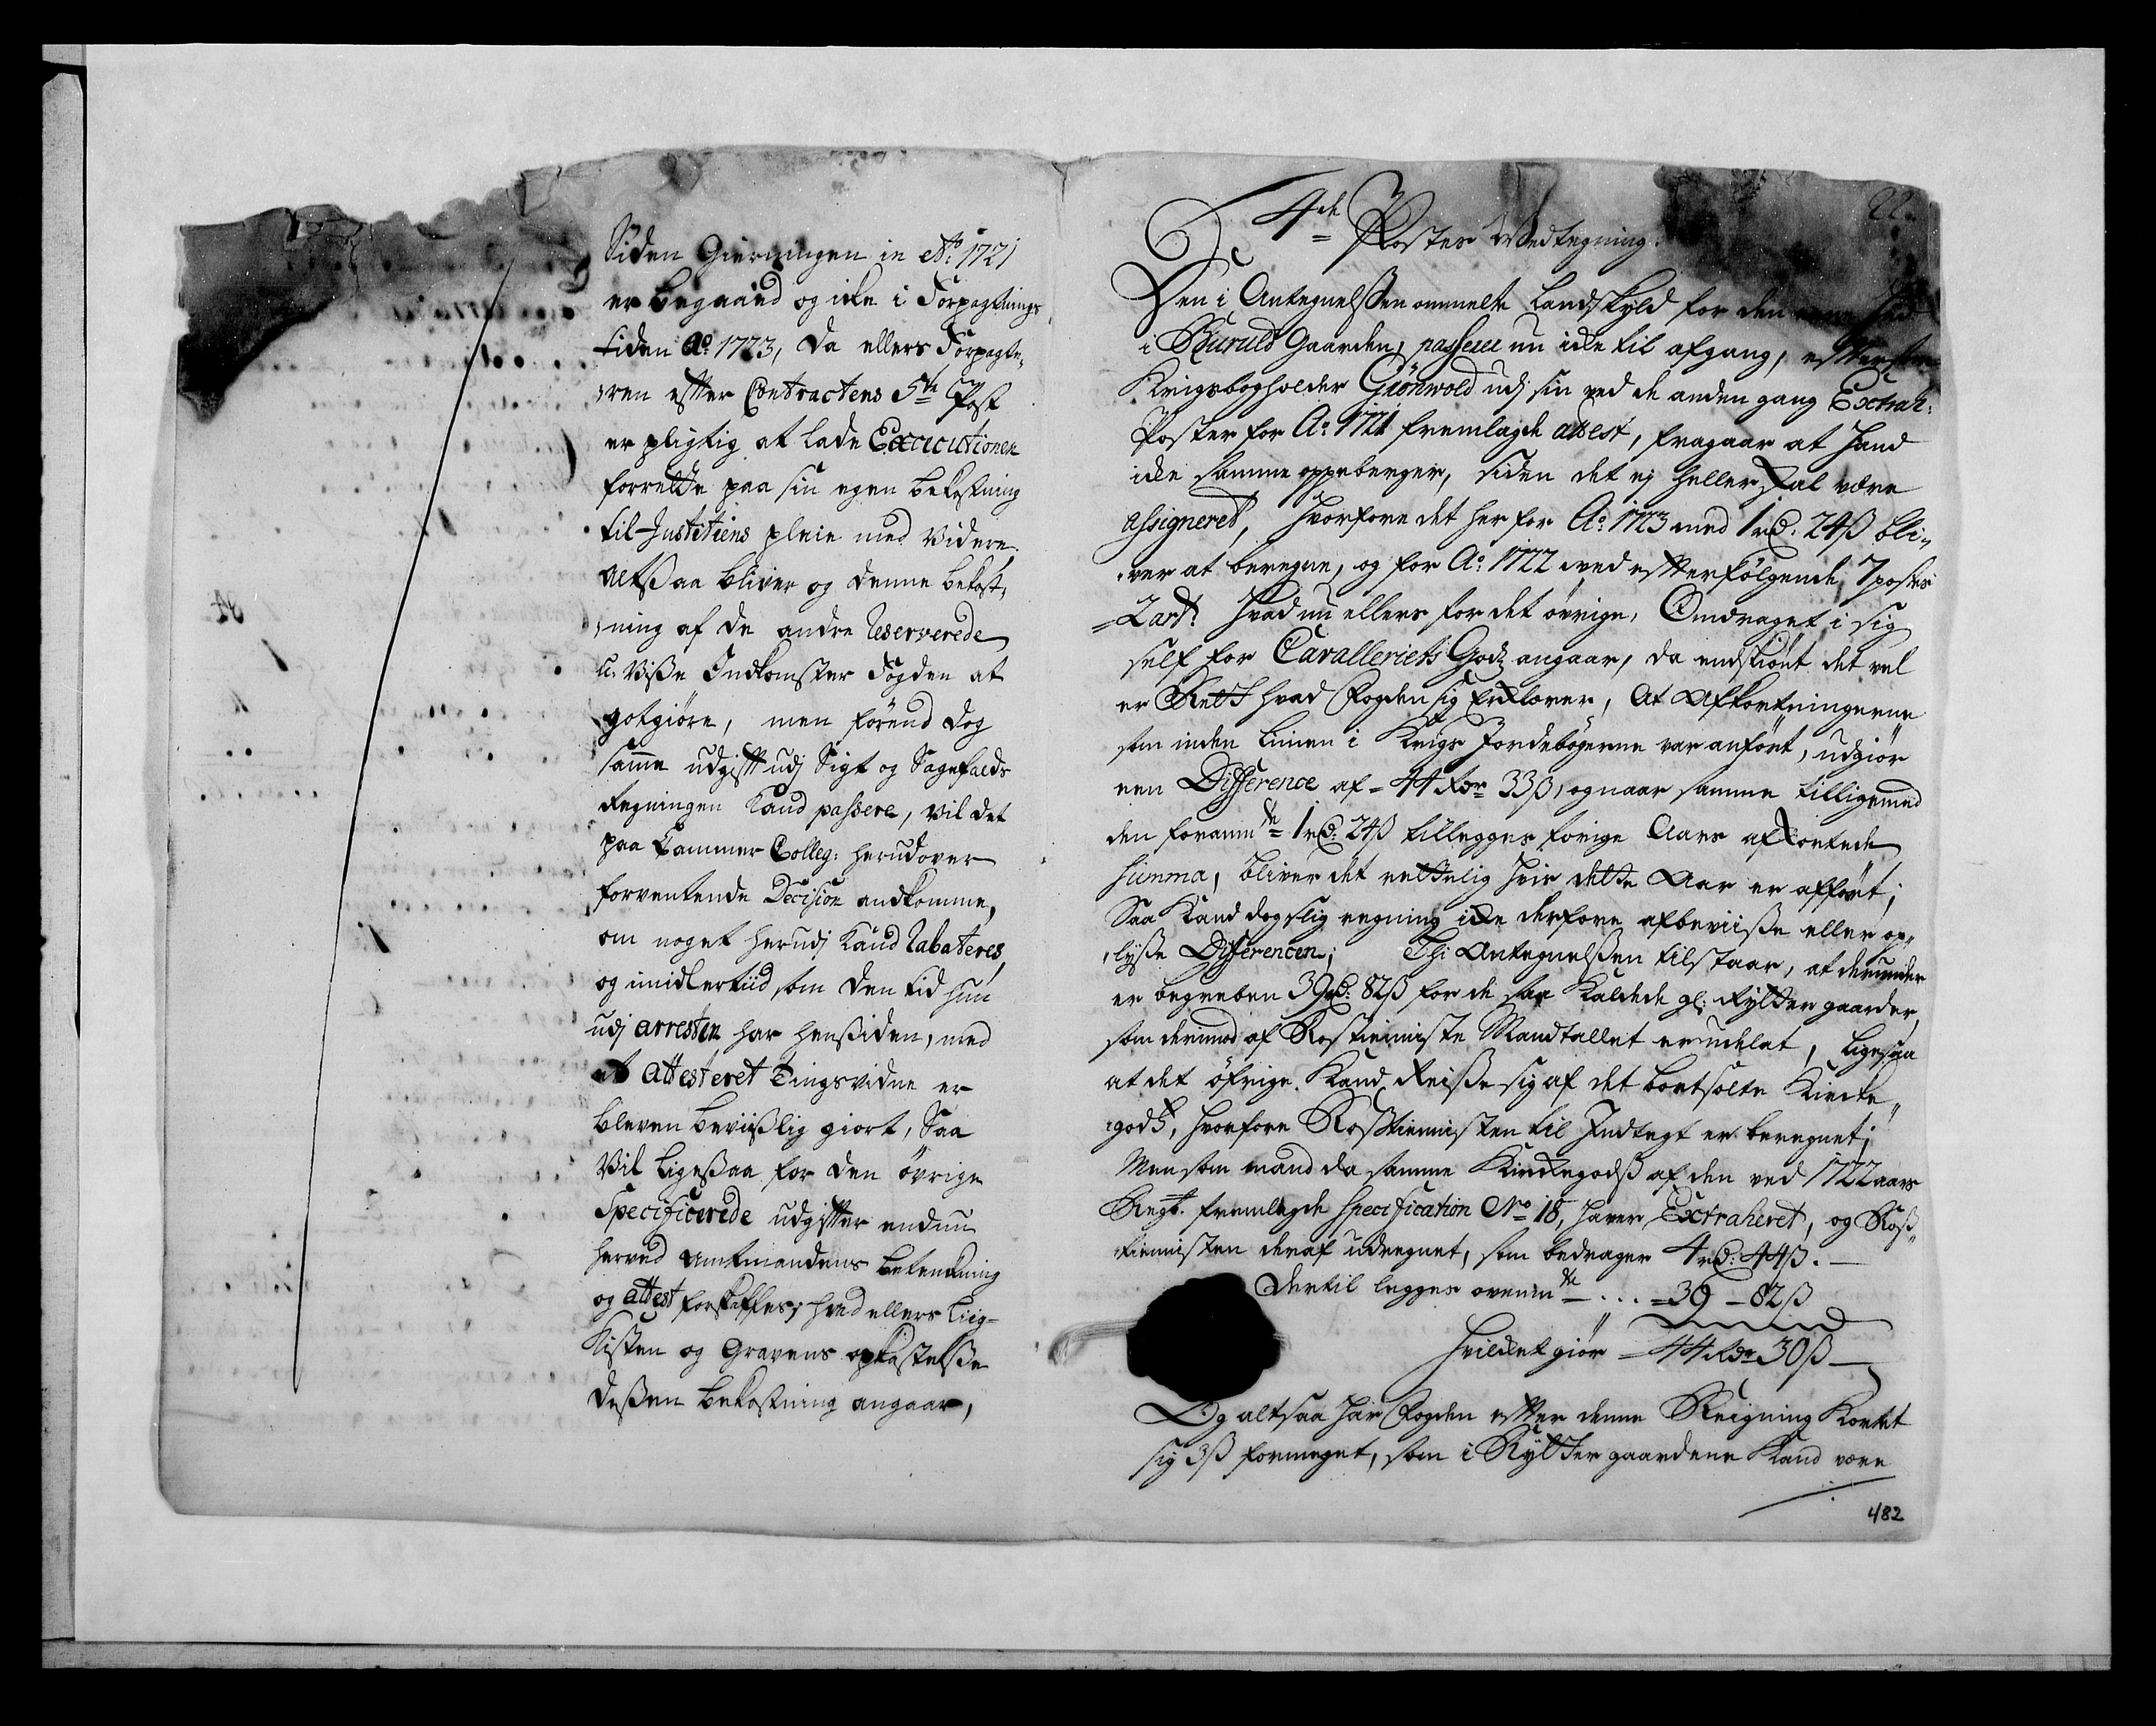 Siden Gierningen in Ao: 1721
er begaaed og icke i Forpagtnings
tiden Ao: 1723, da ellers Forpagte,,
,,ren efter Contractens 5te Post
er pligtig at lade Executionen
forrette paa sin egen bekostning
til Justitiens pleie med Videre.
Altsaa bliver og denne bekost,,
,,ning af de andre Reserverede
u-Visse Indkomster Fogden at
gotgiøre, men førend dog
samme udgift udj Sigt og Sagefalds
Regningen kand passere, vil det
paa Cammer Colleg: herudover
forventende Decision andkomme,
om noget herudj kand Rabateres,
og imidlertiid, som den tid hun
udj arresten har hensiden, med
et attesteret Tingsvidne er
bleven bevislig giort, Saa
Vil ligesaa for den øvrige
Specificerede udgifter endnu
herved Amtmandens betenkning
og attest forskaffes; hvad ellers Liig-
kisten og Gravens opkastelse
dessen bekostning angaar,
22.
4de Postes Vedtegning:
Den i Antegnelssen ommelte Landskyld for den
i Buruld Gaarden, passerer nu icke til afgang, efftersom
Krigsbogholder Grönwold udj sin ved de anden gang Extrah:
Poster for Ao: 1721 fremlagde attest, fragaar at hand
icke samme oppeberger, siden det ej heller skal være
assigneret, hvorfore det her for Ao: 1723 med 1 rd: 24ß bli,,
,,ver at beregne, og for Ao: 1722 ved efterfølgende 7 postes
2 art: hvad nu ellers for det øvrige, Omdraget i sig
self for Cavalleriets Godz angaar, da endskiönt det vel
er Rett hvad Fogden sig Erklærer, At Afkortningerne
som inden Linien i Krigs Jordebögerne var anfört, udgiör
een Difference af - 44 Rdr 33ß, og naar samme tilligemed
den forannte 1 rd: 24ß tillegges forige Aars afkortede
summa, bliver det rettelig hvis dette Aar er affört;
Saa kand dog slig regning icke derfore afbeviise eller op,,
,,lyse Differencen; Thi Antegnelssen tilstaar, at derunder
er begreben 39 rd: 82ß for de saa kaldede gl: Rytter gaarder,
som derimod af Rostieniste Mandtallet er udelat, ligesaa
at det öfrige kand Reise sig af det bortsolte Kircke,,
,,godz, hvorfore Rosstienisten til Indtegt er beregnet;
Men som mand da samme Kirckegodss af den ved 1722 aars
Regsk: fremlagde Specification No 18, haver Extraheret, og Ross,,
tienisten deraf udregnet, som bedrager 4 rd: 44ß. —
Dertil legges ovenmte - . . . = 39 - 82ß
Hvilcket giör = 44 Rdr 30ß —
Og altsaa har Fogden efter denne Reigning kortet
sig 3ß formeget, som i Rytter gaardene kand være
482